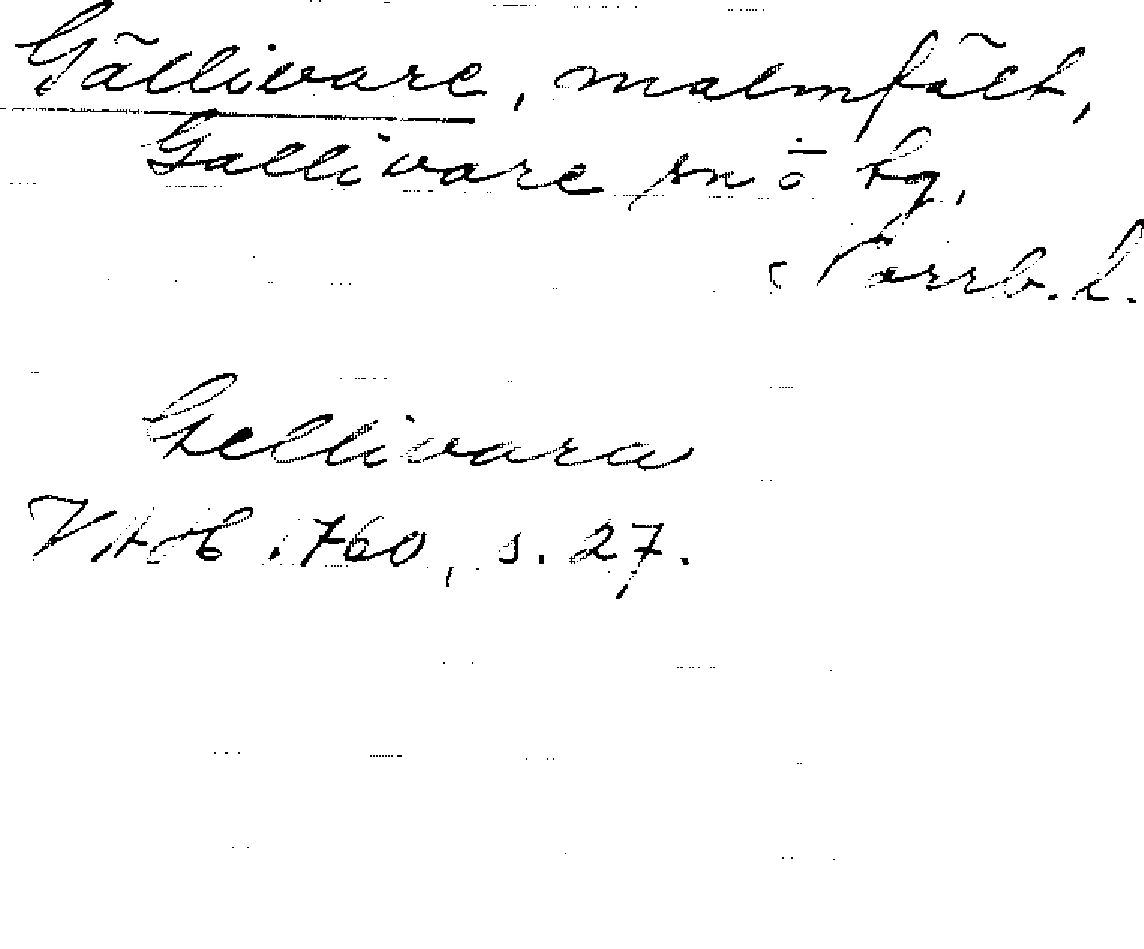 Gällivare, malmfält,
Gällivare sn o tg,
Norrb. l.
Gellivara
VAH 1760, s. 27.